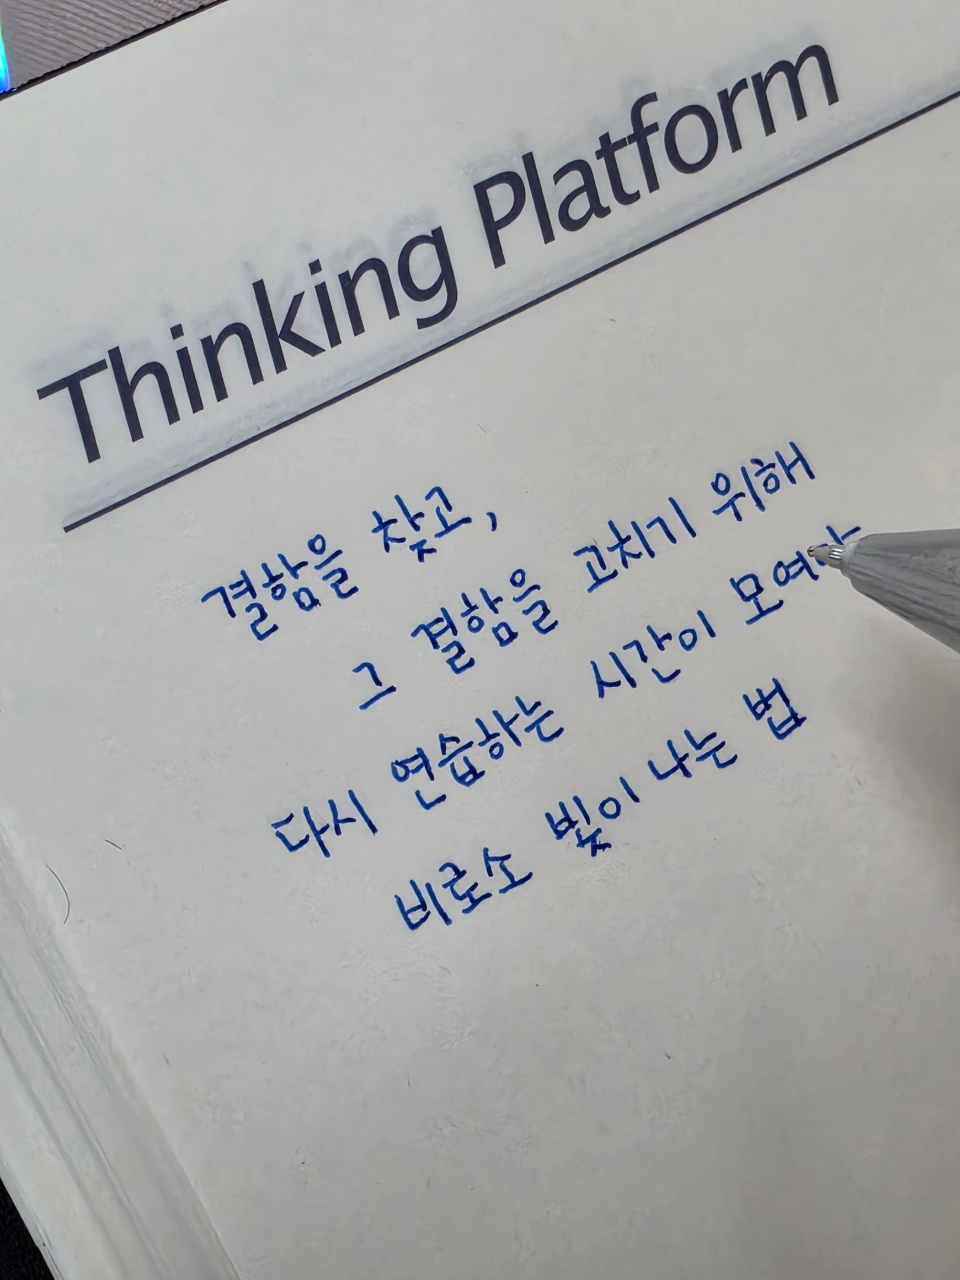 Thinking Platform
결함을 찾고,
그 결함을 고치기 위해
다시 연습하는 시간이
비로소 빛이 나는 법